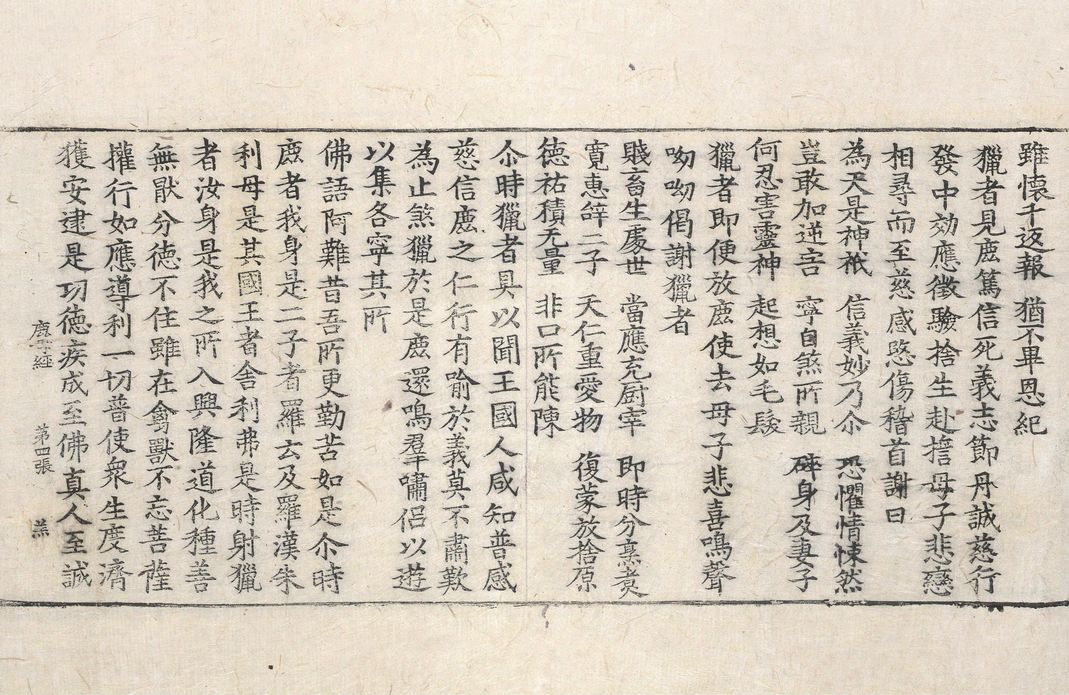 雖懷千返報 猶不畢恩紀
獵者見鹿篤信死義志節丹誠慈行
發中効應徵驗捨生赴擔母子悲戀
相尋而至慈感愍傷稽首謝曰
為天是神祇 信義妙乃尒 恐懼情悚然
豈敢加逆害 寧自煞所親 碎身及妻子
何忍害靈神 起想如毛髮
獵者即便放鹿使去母子悲喜鳴聲
呦呦偈謝獵者
賤畜生處世 當應充厨宰 即時分烹煑
寛惠辝二子 天仁重愛物 復蒙放捨原
德祐積无量 非口所能陳
尒時獵者具以聞王國人咸知普感
慈信鹿之仁行有喻於義莫不肅歎
為止煞獵於是鹿還鳴羣嘯侣以遊
以集各寧其所
佛語阿難昔吾所更勤苦如是尒時
鹿者我身是二子者羅云及羅漢朱
利母是其國王者舍利弗是時射獵
者汝身是我之所入興隆道化種善
無猒分德不住雖在禽獸不忘菩薩
權行如應導利一切普使衆生度濟
獲安逮是功德疾成至佛真人至誠
鹿母經 第四張 羔